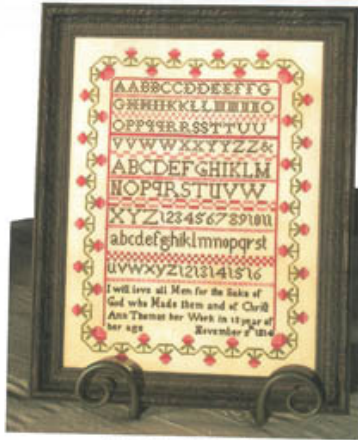 AABBCCDDEEFFG
GHHIIKKLLMMNNO
OPPqqRRSSTTUU
VVWWXXYYZZ&
ABCDEFGHIKLM
NOPqRSTUVW
XYZ1234567891011
abcdefghiklmnopqrst
uvwxyz1213141516
I will love all Men for the Sake of
God who Made them and of Christ
Ann Thomas her Work in 12 year of
her age November 2 1814